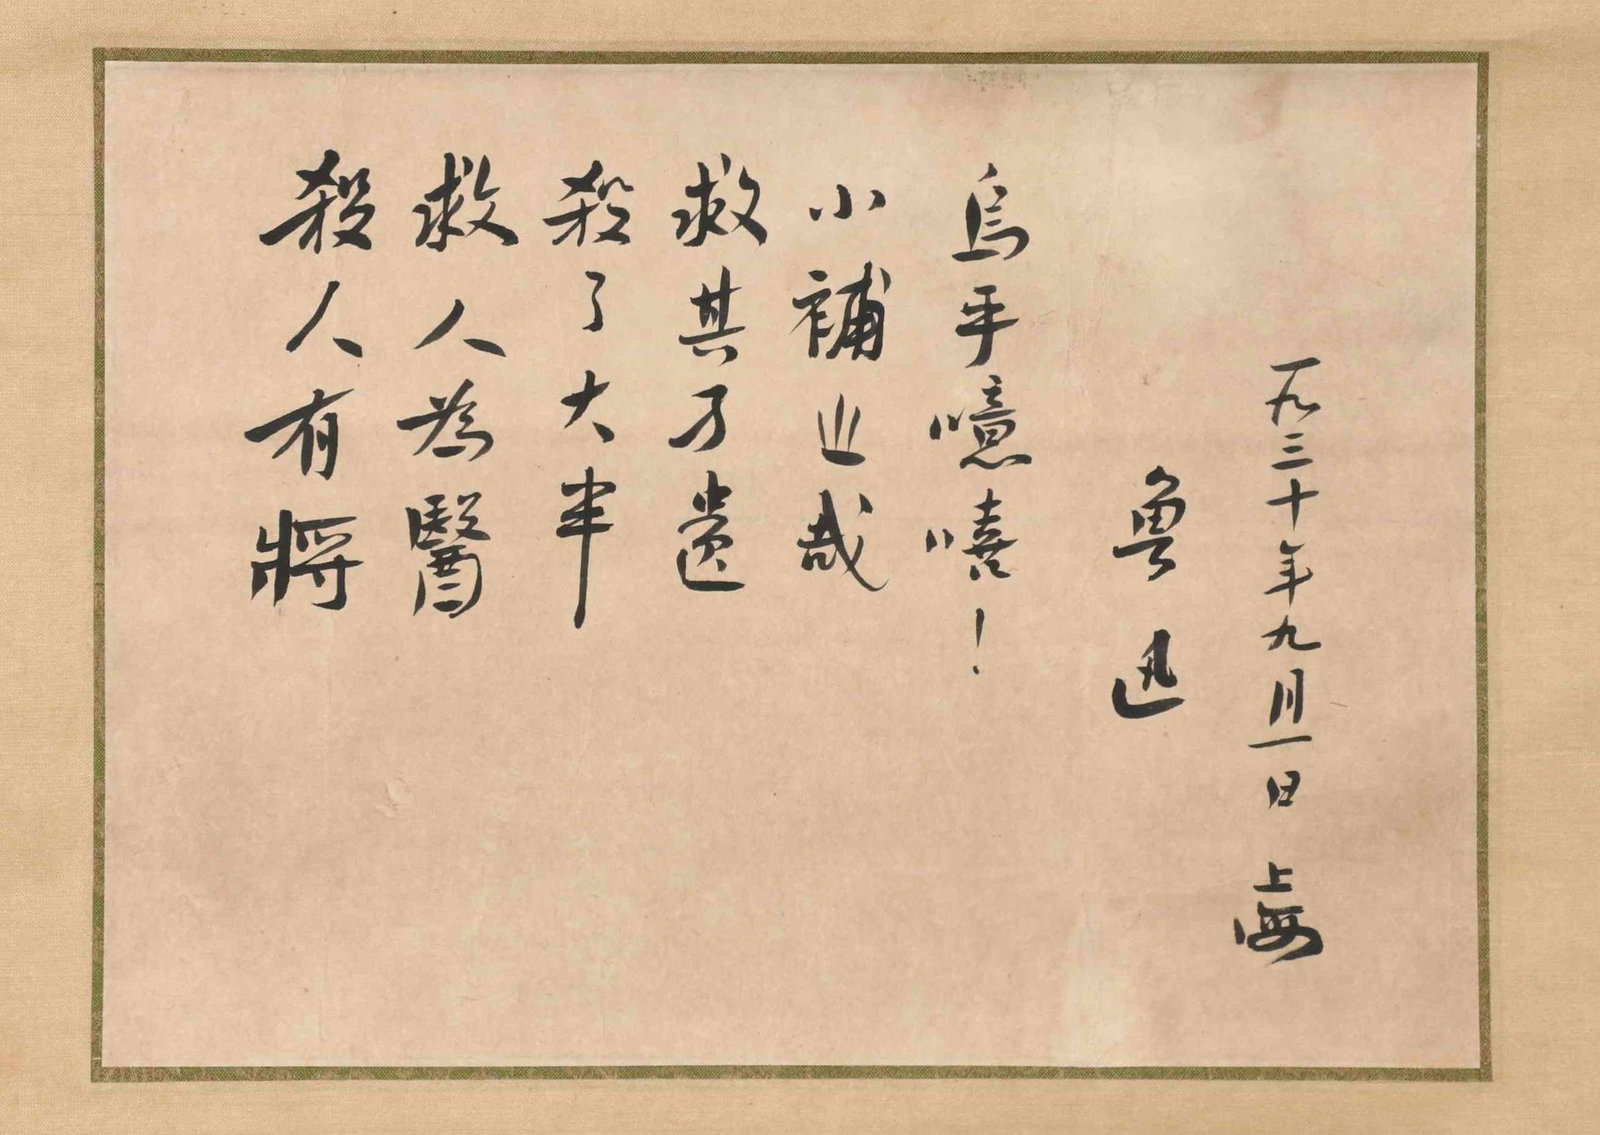 殺人有將
救人為醫
殺了大半
救其孑遺
小補之哉
烏乎噫嘻！
魯迅
一九三十年九月一日 上海